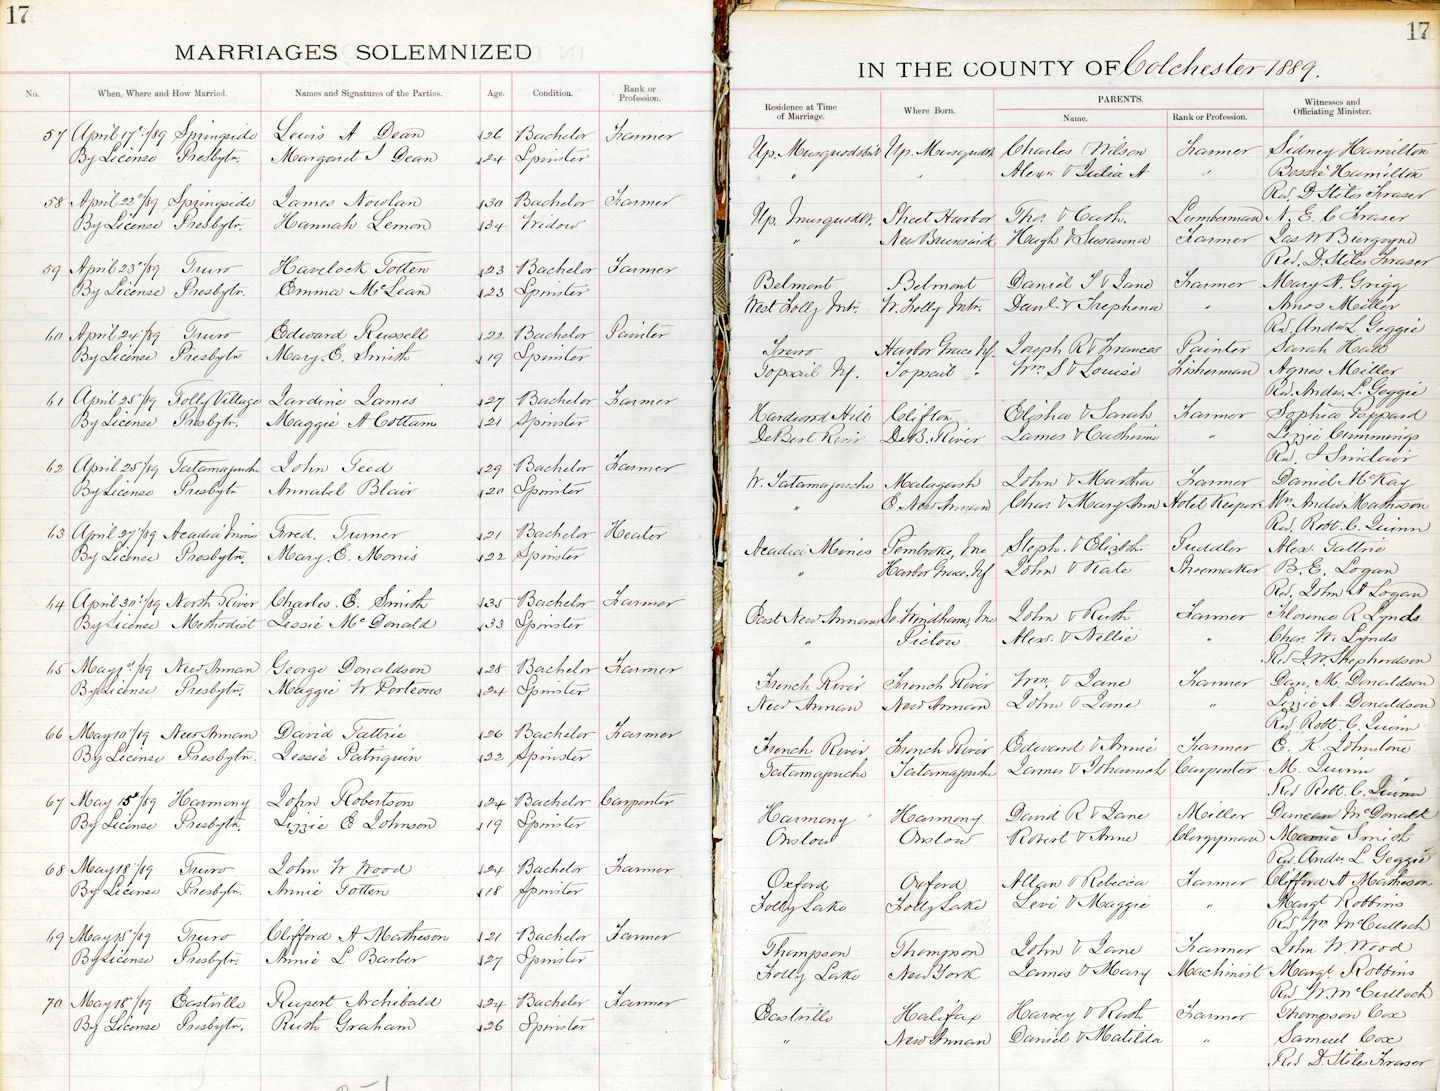 17
MARRIAGES SOLEMNIZED
No. When, Where and How Married. Names and Signatures of the Parties. Age. Condition. Rank or Profession.
57 April 17th/89 Springside Lewis A Dean 26 Bachelor Farmer
By License Presbytn. Margaret J Dean 24 Spinster
58 April 22nd/89 Springside James Nowlan 30 Bachelor Farmer
By License Presbytr. Hannah Lemon 34 Widow
59 April 23rd/89 Truro Havelock Totten 23 Bachelor Farmer
By License Presbytr. Emma McLean 23 Spinster
60 April 24th/89 Truro Edward Russell 22 Bachelor Painter
By License Presbytn Mary. E. Smith 19 Spinster
61 April 25th/89 Folly Village Jardine James 27 Bachelor Farmer
By License Presbytr. Maggie A Cottam 21 Spinster
62 April 25th/89 Tatamagouche John Teed 29 Bachelor Farmer
By License Presbytr Annabel Blair 20 Spinster
63 April 27th/89 Acadia Mines Fred. Turner 21 Bachelor Heater
By License Presbytn. Mary. E. Morris 22 Spinster
64 April 30th/89 North River Charles. E. Smith 35 Bachelor Farmer
By License Methodist Jessie McDonald 33 Spinster
65 May 1st/89 New Annan George Donaldson 28 Bachelor Farmer
By License Presbytr. Maggie W Porteous 24 Spinster
66 May 10th/89 New Annan David Tattrie 26 Bachelor Farmer
By License Presbytr. Jessie Patriquin 22 Spinster
67 May 15th/89 Harmony John Robertson 24 Bachelor Carpenter
By License Presbytr. Lizzie E Johnson 19 Spinster
68 May 18th/89 Truro John W Wood 24 Bachelor Farmer
By License Presbytr. Annie Totten 18 Spinster
69 May 15th/89 Truro Clifford A Matheson 21 Bachelor Farmer
By License Presbytr. Annie L Barber 27 Spinster
70 May 18th/89 Eastville Rupert Archibald 24 Bachelor Farmer
By License Presbytr. Ruth Graham 26 Spinster
17
IN THE COUNTY OF Colchester 1889.
Residence at Time of Marriage. Where Born. PARENTS. Name. Rank or Profession. Witnesses and Officiating Minister.
Up. Musquodobit Up. Musquodt. Charles Wilson Farmer Sidney Hamilton
" " Alexr & Julia A " Bessie Hamilton
Rev. D Stiles Fraser
Up. Musquodt. Sheet Harbor Tho. & Cath. Lumberman N. E. C Fraser
" New Brunswick Hugh & Susanna Farmer Jas W Burgoyne
Rev. D. Stiles Fraser
Belmont Belmont Daniel S & Jane Farmer Mary A. Grigg
West Folly Mtn. W. Folly Mtn. Danl. & Trephena " Amos Miller
Rev. Andw L Geggie
Truro Harbor Grace Nf. Joseph R & Frances Painter Sarah Hall
Topsail Nf. Topsail " Wm S & Louise Fisherman Agnes Miller
Rev. Andw. L. Geggie
Hardwood Hill Clifton Elisha & Sarah Farmer Sophia Peppard
DeBert River DeB. River James & Catherine " Lizzie Cummings
Rev. J Sinclair
W. Tatamagouche Malagash John & Martha Farmer Daniel McKay
" E. New Annan Char. & Mary Ann Hotel Keeper Wm. Andw Matheson
Rev. Robt. C. Quinn
Acadia Mines Pembroke, Me Steph. & Elizbth. Puddler Alex. Tattrie
" Harbor Grace, Nf John & Kate Shoemaker B. E. Logan
Rev. John A Logan
East New Annan So. Windham, Me John & Ruth Farmer Florence R Lynds
" Pictou Alex. & Nellie " Char. W. Lynds
Rev J. W. Shepherdson
French River French River Wm. & Jane Farmer Dan. M. Donaldson
New Annan New Annan John & Jane " Lizzie A. Donaldson
Rev Robt. C. Quinn
French River French River Edward & Annie Farmer E. K. Johnstone
Tatamagouche Tatamagouche James & Johannah Carpenter M. Quinn
Rev Robt. C. Quinn
Harmony Harmony David R & Jane Miller Duncan McDonald
Onslow Onslow Robert & Anne Clergyman Mamie Smith
Rev. Andw L Geggie
Oxford Oxford Allan & Rebecca Farmer Clifford A Matheson
Folly Lake Folly Lake Levi & Maggie " Margt Robbins
Rev Wm McCulloch
Thompson Thompson John & Jane Farmer John W. Wood
Folly Lake New York James & Mary Machinist Margt Robbins
Rev W. McCulloch
Eastville Halifax Harvey & Ruth Farmer Thompson Cox
" New Annan Daniel & Matilda " Samuel Cox
Rev D. Stiles Fraser